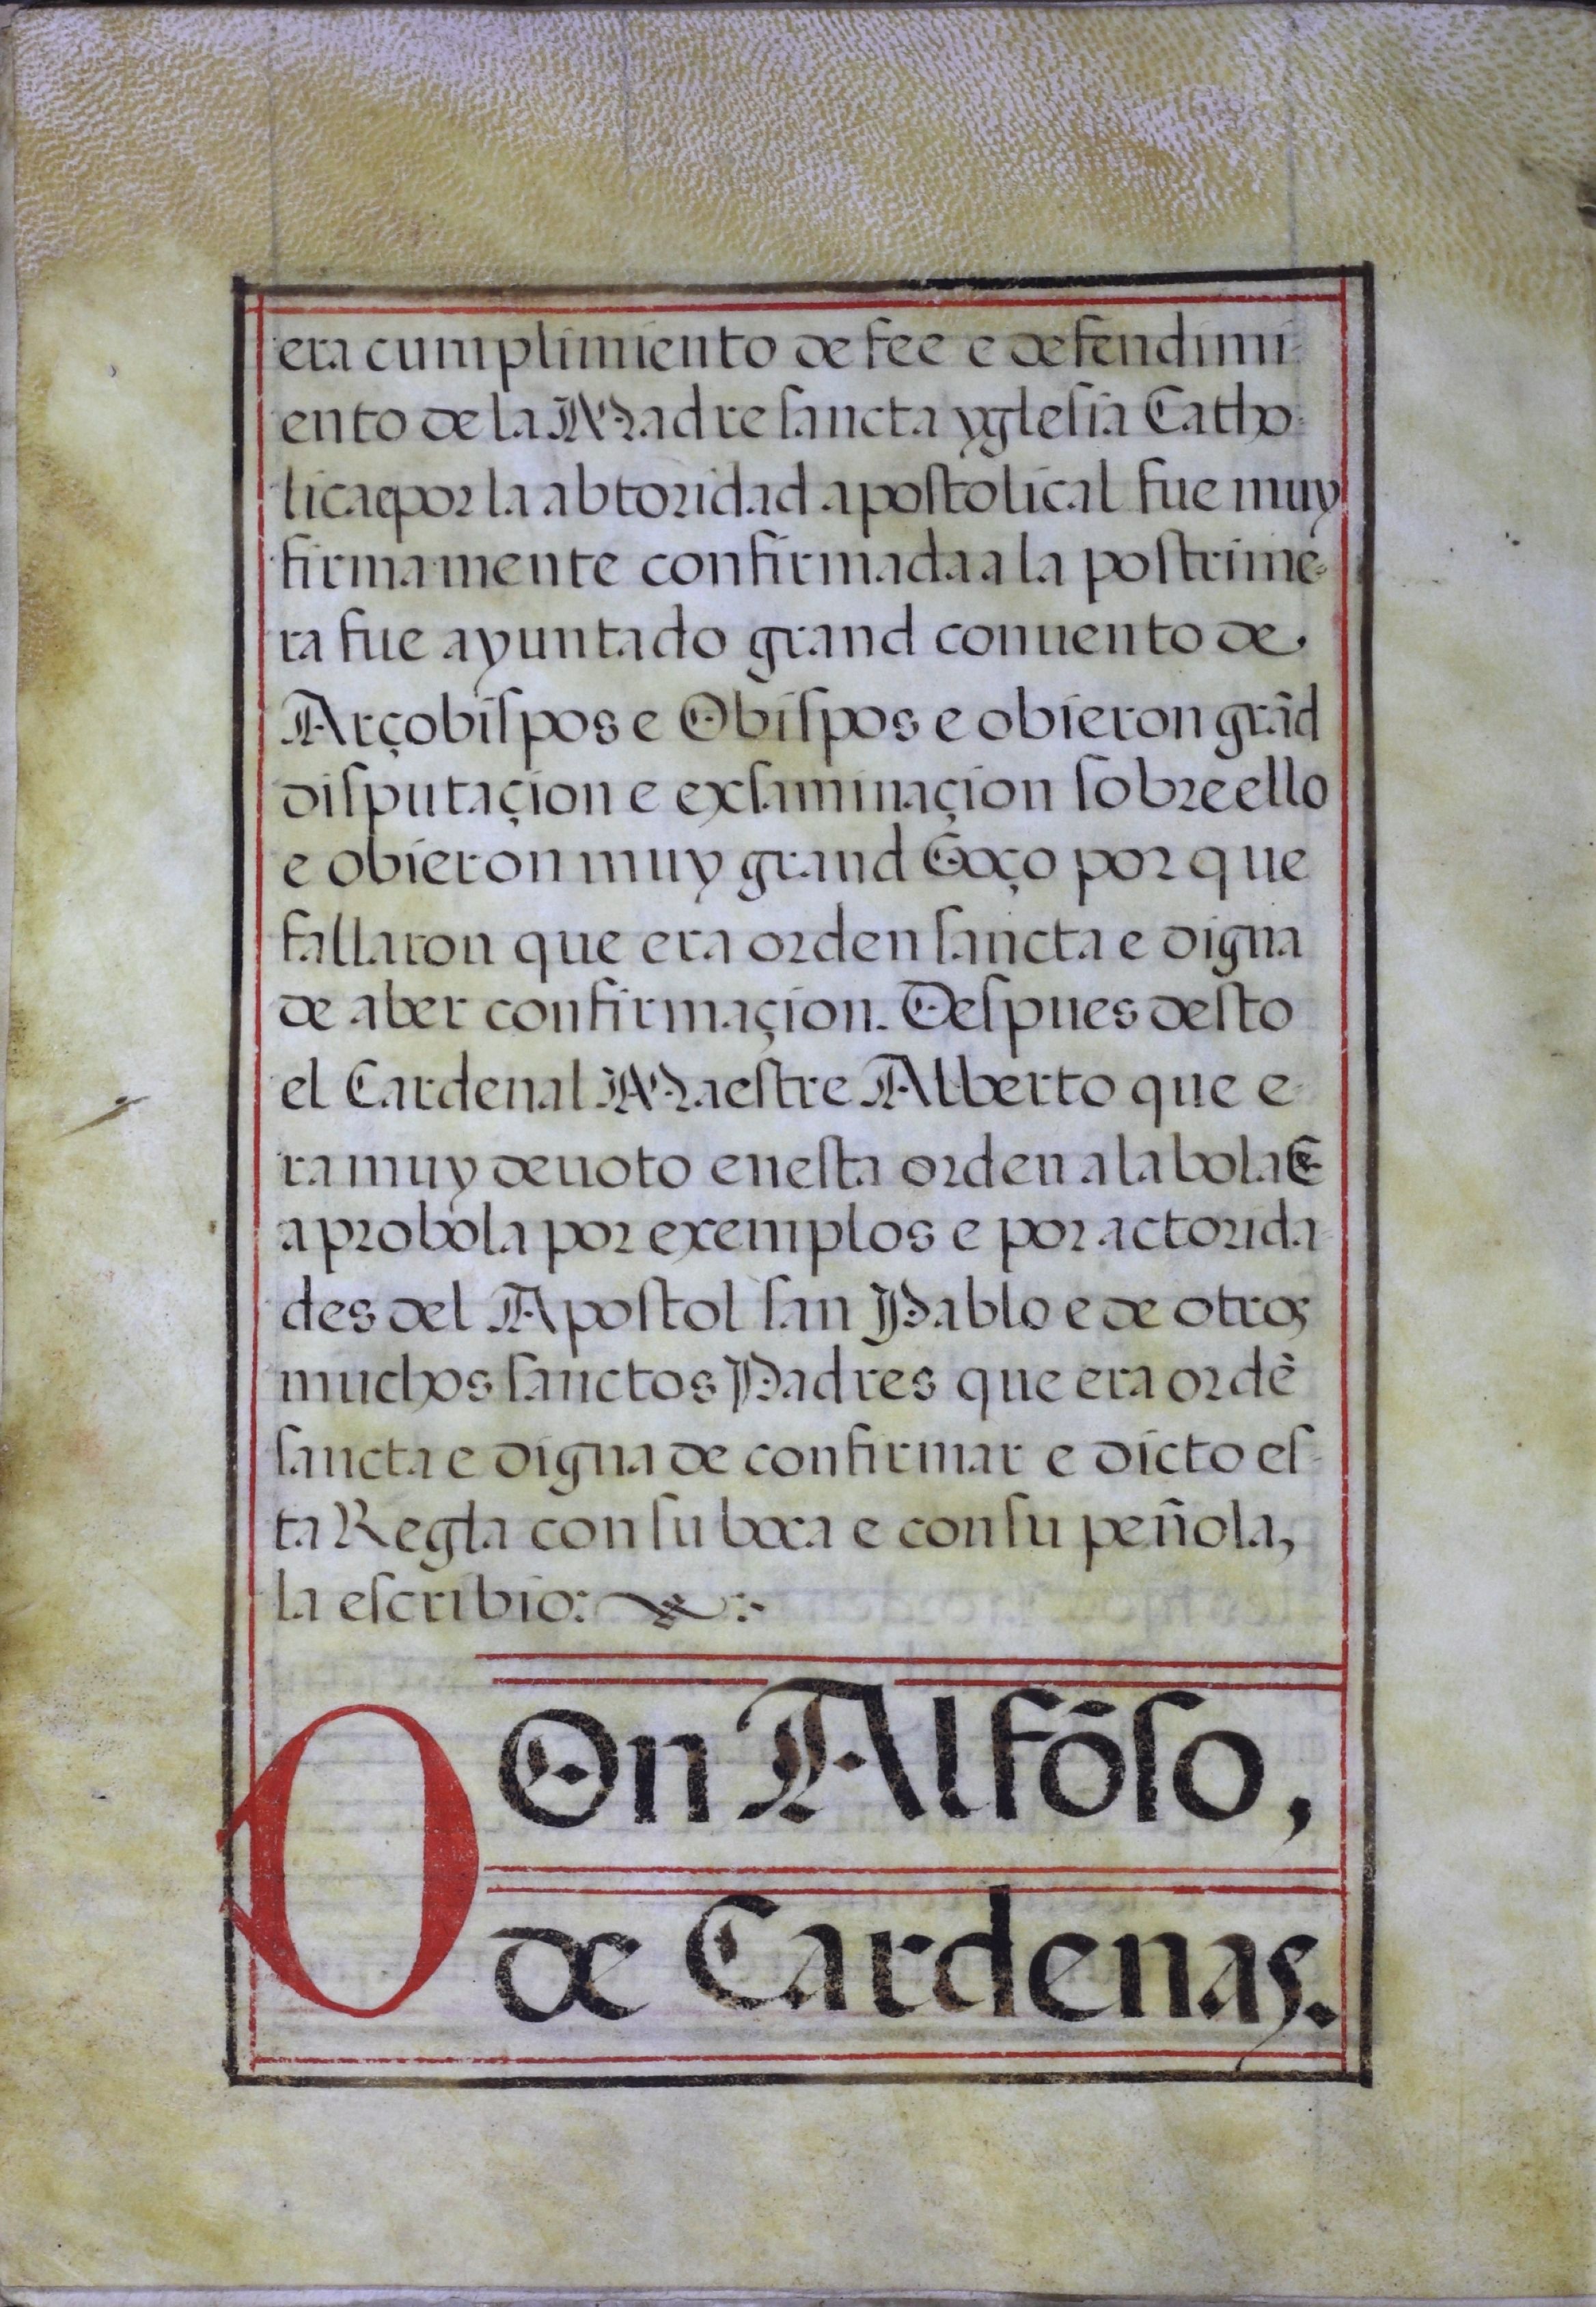 era cumplimiento de fee e defendimi-
ento de la Madre sancta yglesia Catho-
lica e por la abtoridad apostolical fue muy
firmamente confirmada a la postrime-
ra fue ayuntado grand conuento de
Arçobispos e Obispos e obieron grãd
disputaçion e exsaminaçion sobre ello
e obieron muy grand Goço por que
fallaron que era orden sancta e digna
de aber confirmaçion. Despues desto
el Cardenal Maestre Alberto que e-
ra muy deuoto en esta orden alabola E
aprobola por exemplos e por actorida-
des del Apostol san Pablo e de otros
muchos sanctos Padres que era ordẽ
sancta e digna de confirmar e dicto es-
ta Regla con su boca e con su peñola,
la escribio:
DOn Alfõso,
de Cardenas.